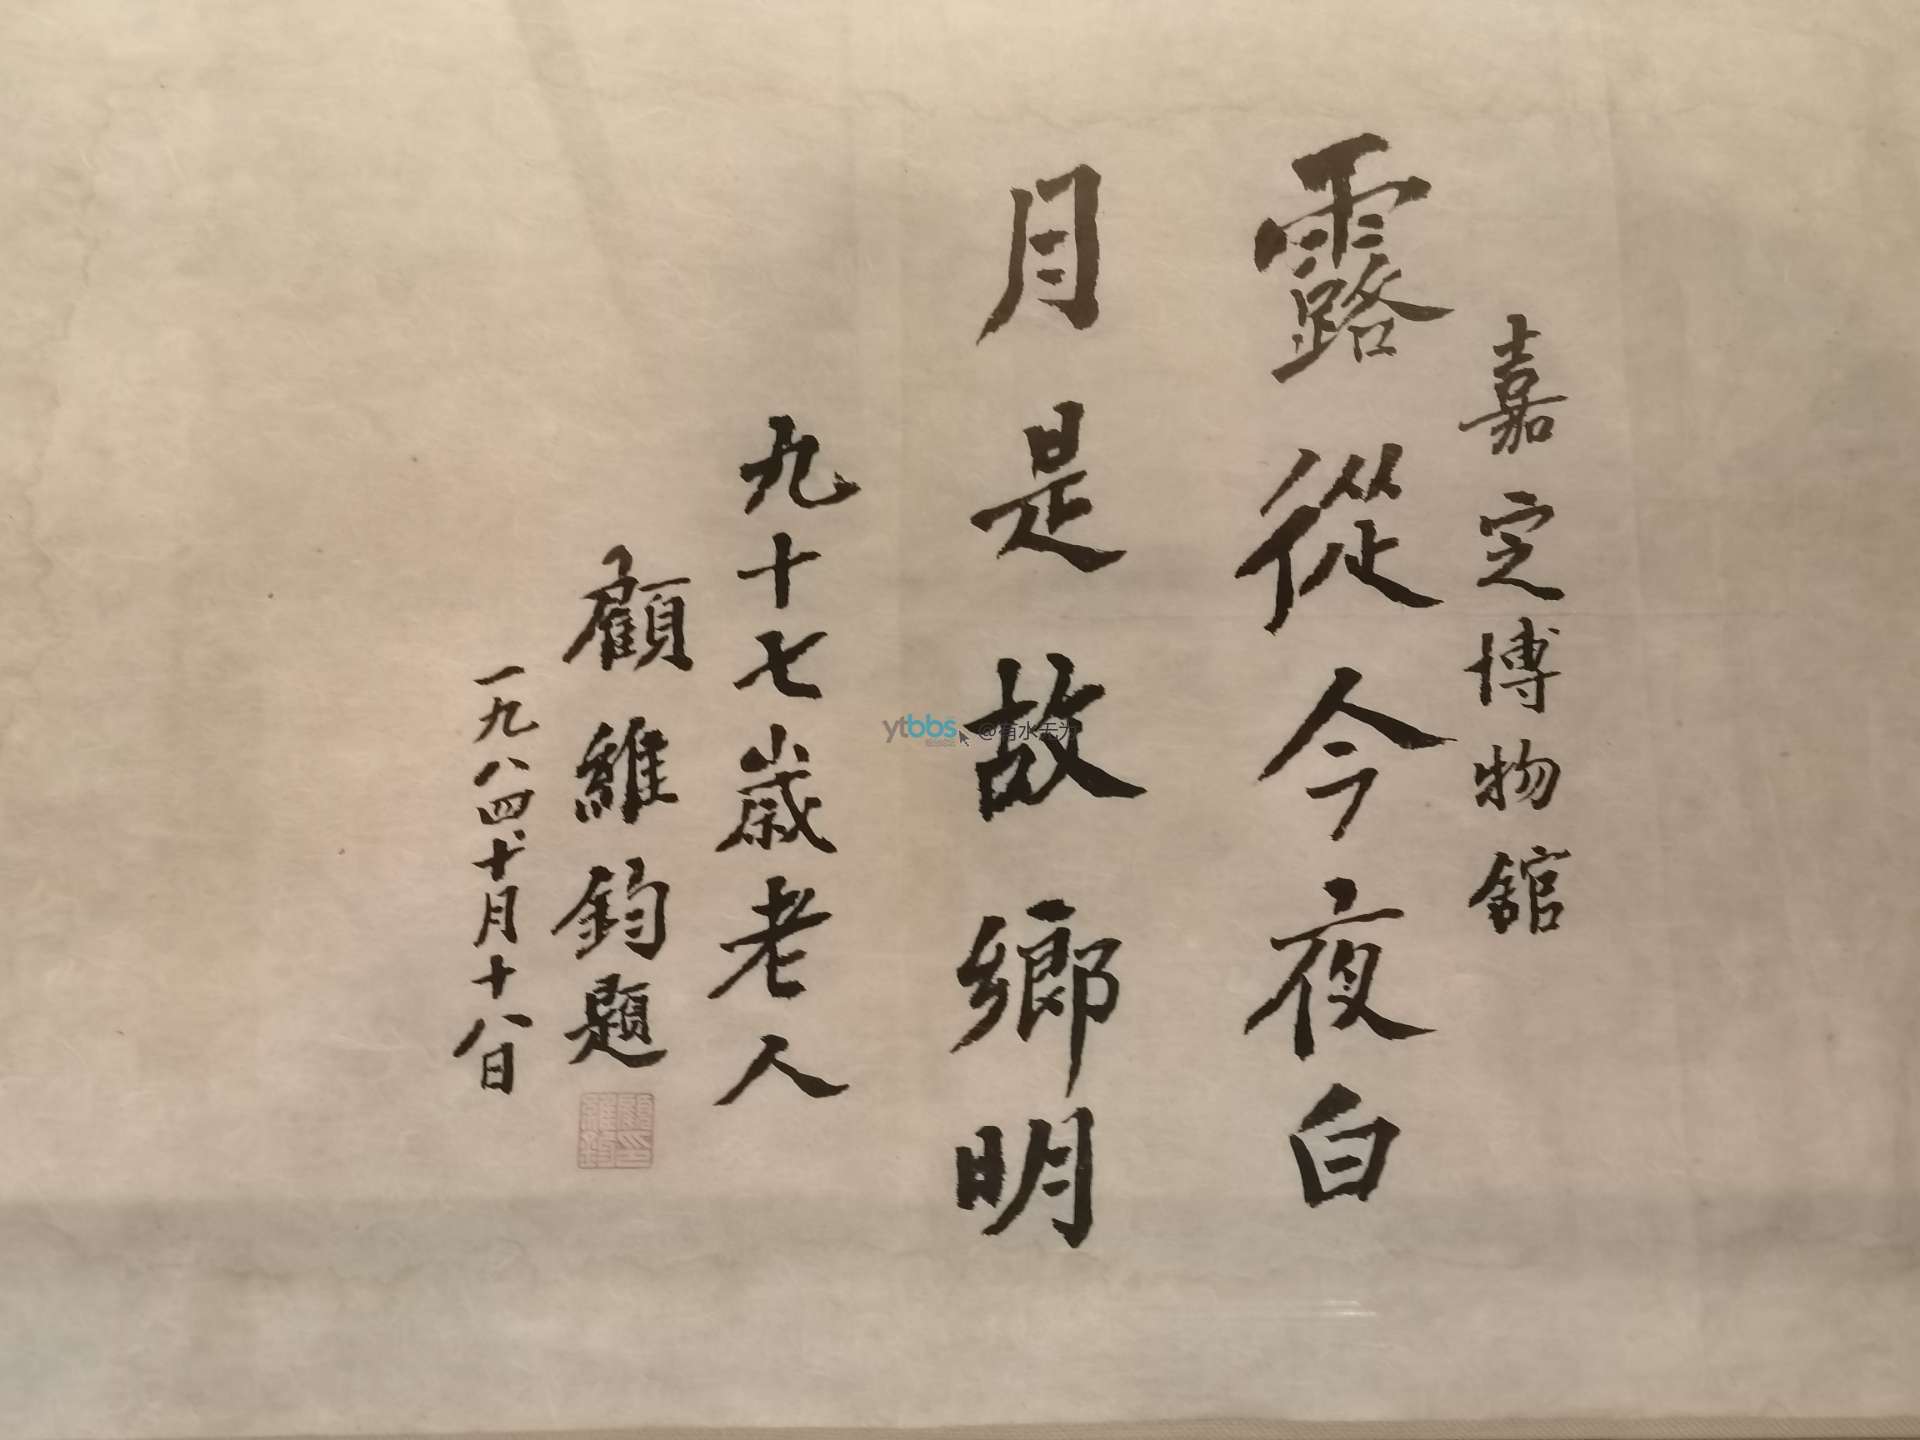 嘉定博物館
露從今夜白
月是故鄉明
九十七歲老人
顧維鈞題
一九八四、十月十八日
顧維鈞印
ytbbs @有水无为